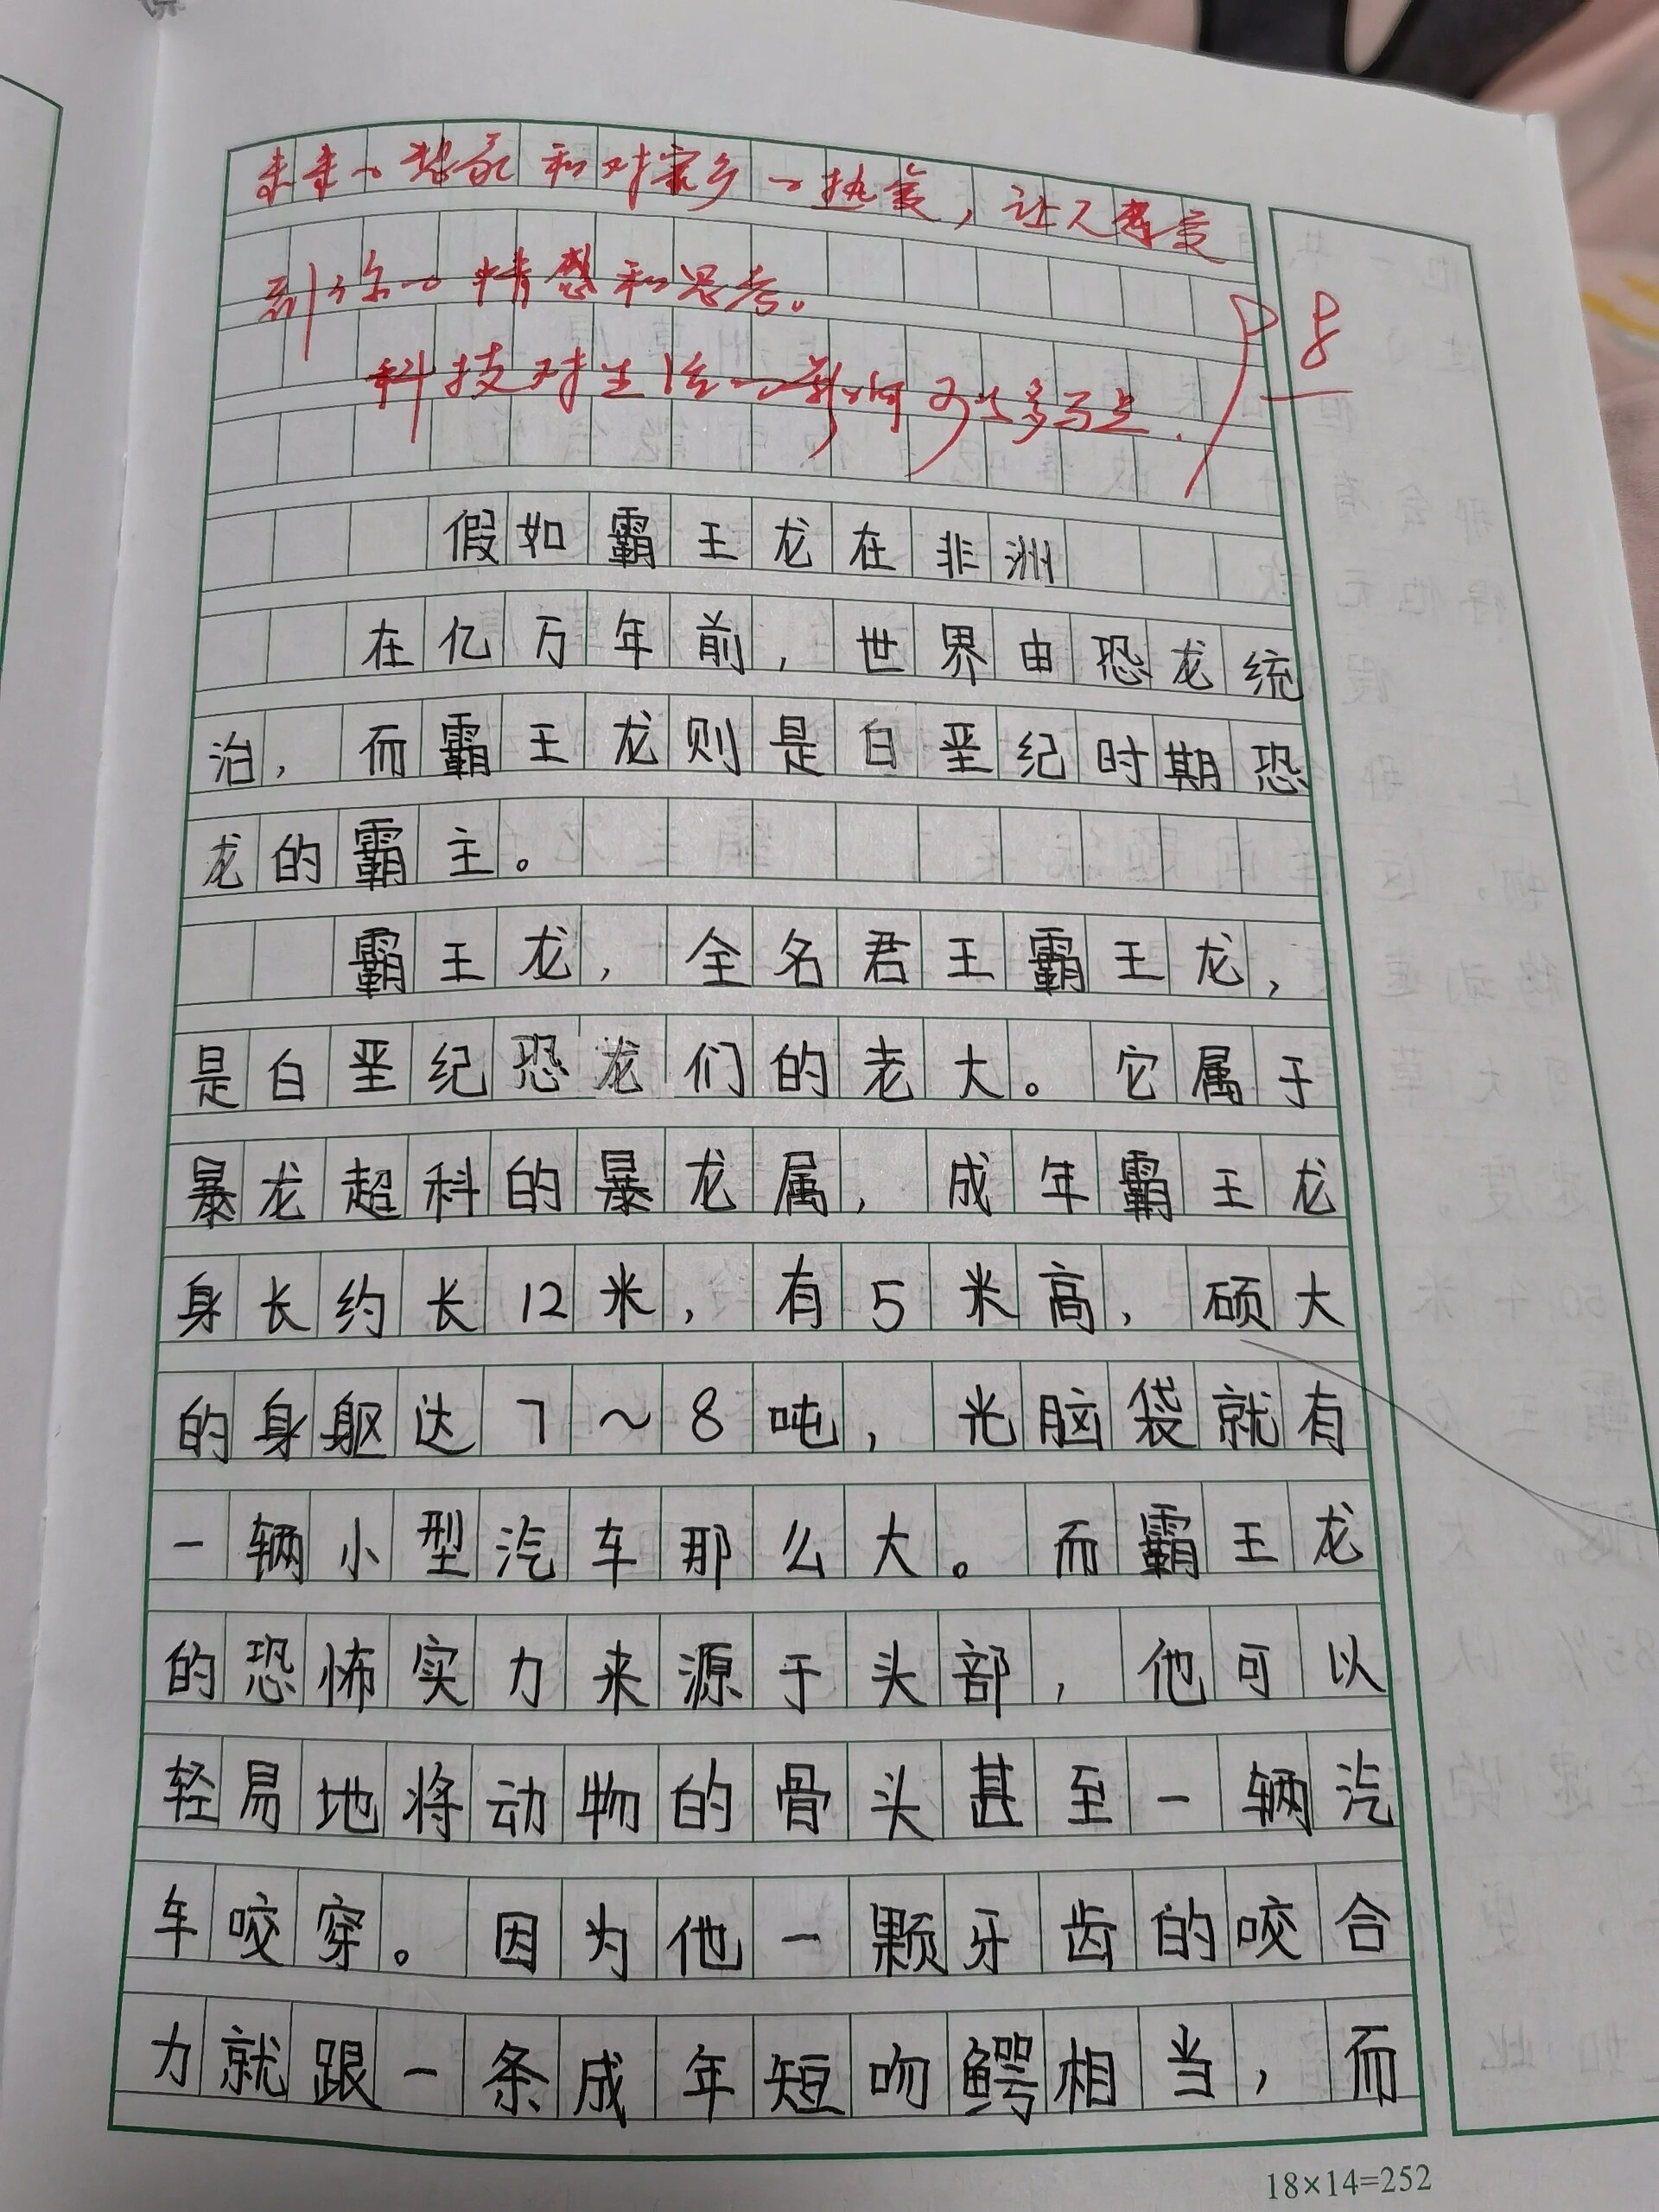 未来的想象和对家乡的热爱，让人感受
到你的情感和思考。
科技对生活的影响可以多写点。
假如霸王龙在非洲
在亿万年前，世界由恐龙统
治，而霸王龙则是白垩纪时期恐
龙的霸主。
霸王龙，全名君王霸王龙，
是白垩纪恐龙们的老大。它属于
暴龙超科的暴龙属，成年霸王龙
身长约长12米，有5米高，硕大
的身躯达7～8吨，光脑袋就有
一辆小型汽车那么大。而霸王龙
的恐怖实力来源于头部，他可以
轻易地将动物的骨头甚至一辆汽
车咬穿。因为他一颗牙齿的咬合
力就跟一条成年短吻鳄相当，而
18×14=252